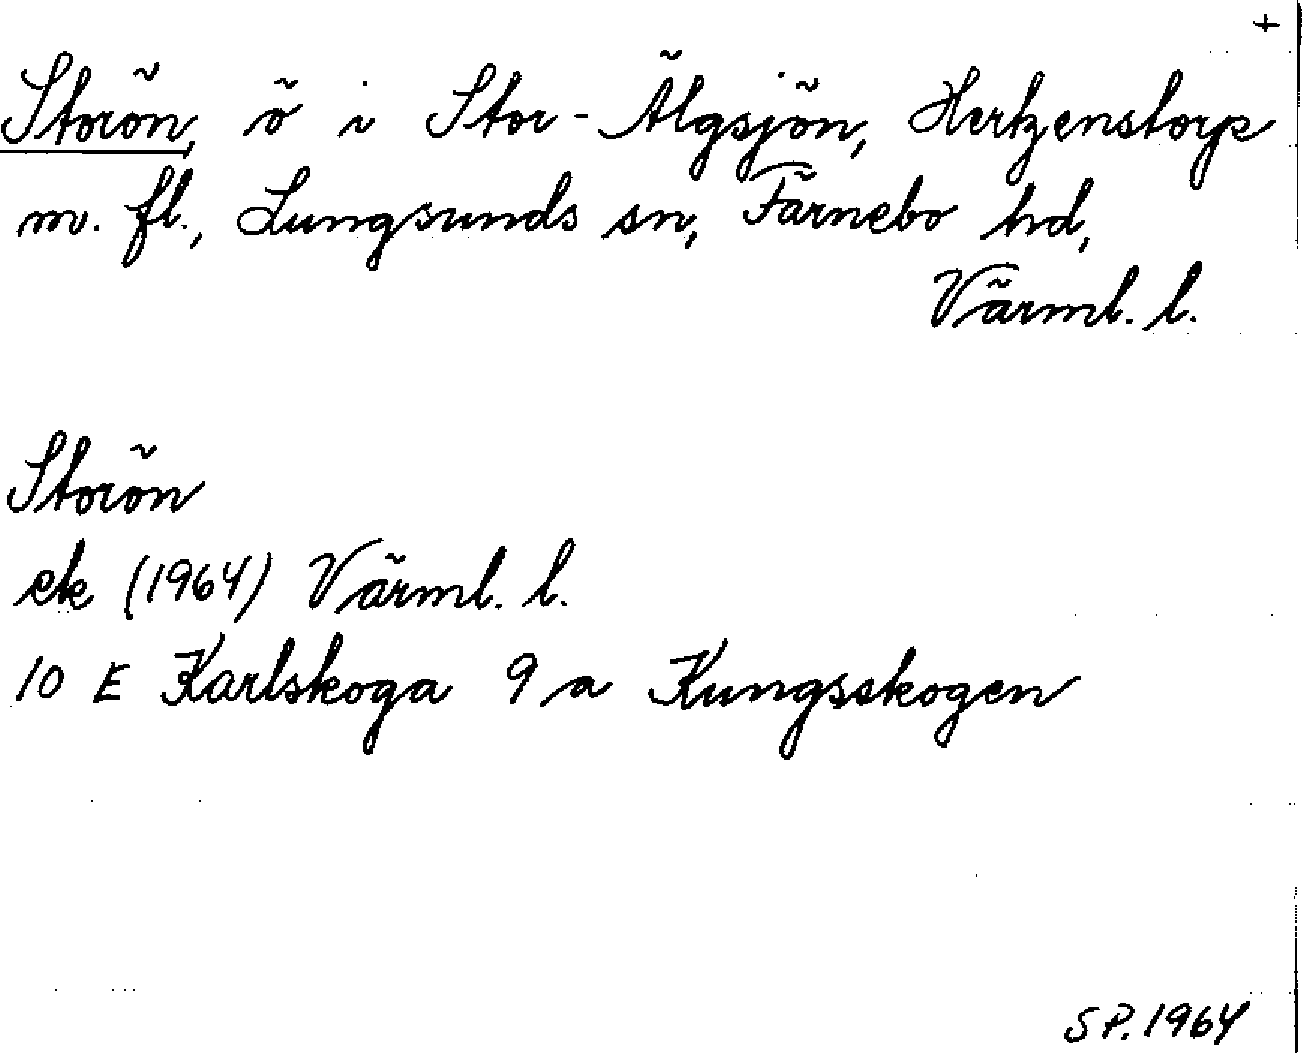 +
Storön, ö i Stor-Älgsjön, Hertzenstorp
m. fl., Lungsunds sn, Färnebo hd,
Värml. l.
Storön
ek (1964) Värml. l.
10 E Karlskoga 9 a Kungsskogen
SP. 1964